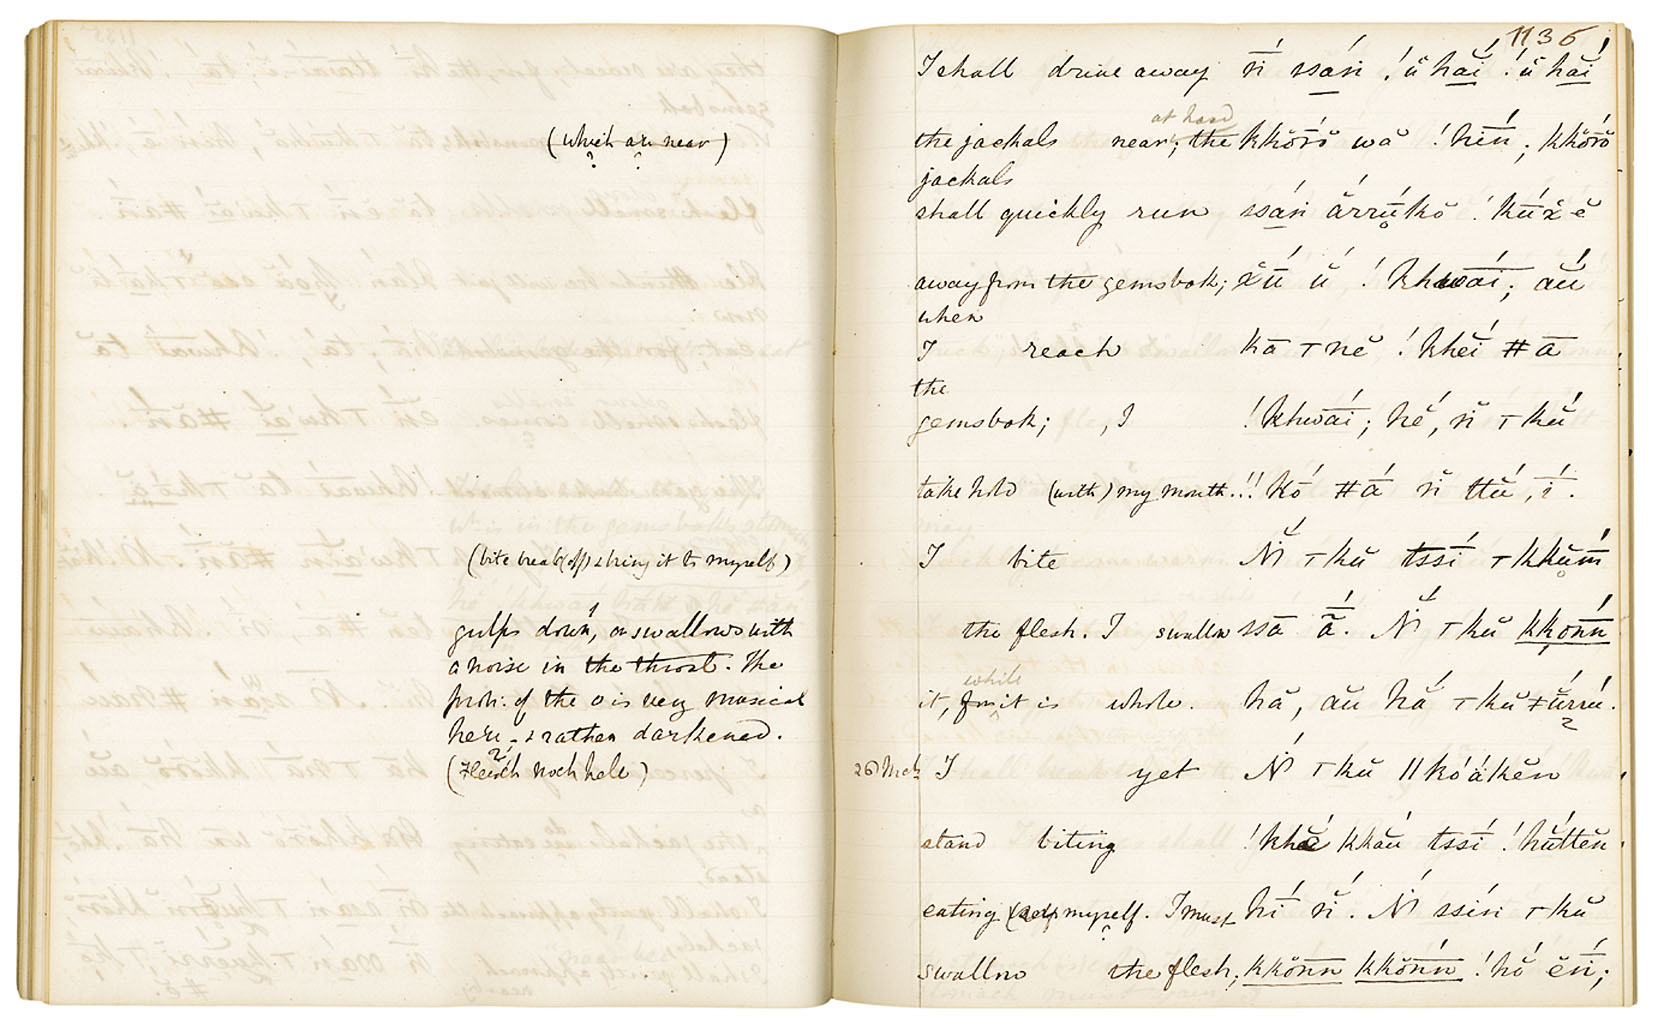 (which are near)
(bite break (off) & bring it to myself)
gulps down, or swallows with
a noise in the throat. The
pron: of the o is very musical
here - & rather darkened.
noch hele)
1136
I shall drive away ssań !ŭ hăí !ŭ hăí
at hand
the jackals near; the kkŏrŏ wă !hĭń; kkŏrŏ
jackals
shall quickly run ssań ărrŭkŏ !kŭxĕ
away from the gemsbok; xū ŭ !khwāí; ăŭ
when
I reach kā ㅜnĕ !khĕí #ā
the
gemsbok; , I !khwāí; hé, ń ㅜkŭ
take hold (with) my mouth. !!kó #ā ń ttŭ, í.
I bite Ń ㅜkŭ tssī ㅜkkŭm
the flesh. I swallow ssā ā. Ń ㅜkŭ kkonn
while
it, for it is whole. hă, ăŭ hă ㅜkŭ ǂŭrrú.
26 Mch I yet Ń ㅜkŭ ||kóăkĕn
stand biting !khĕ kkău tssī !hŭttĕn
eating myself. I must hí ń. Ń ssin ㅜkŭ
swallow the flesh; kkŏnn kkŏnn !hŏ ĕń;